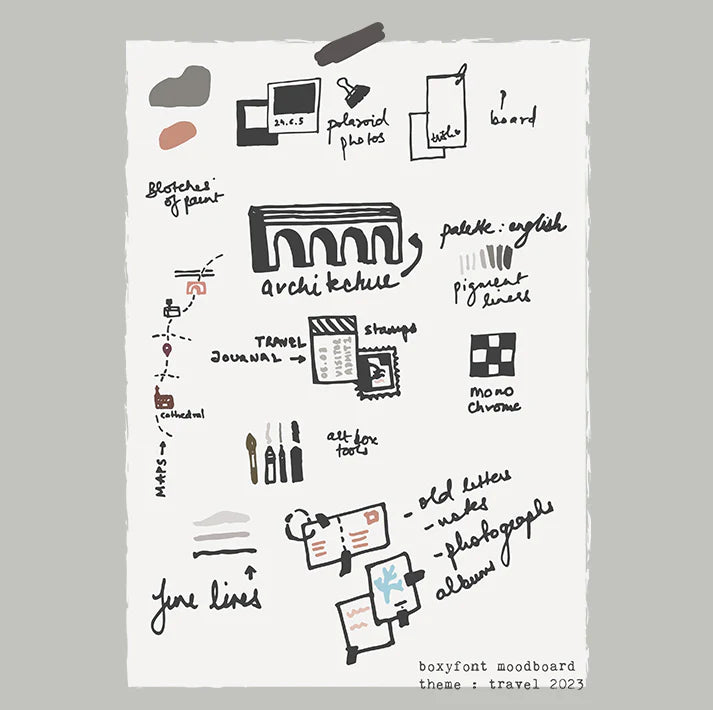 24.6.5
polaroid
photos
board
Blotches
of paint
palette : english
pigment
liners
architecture
TRAVEL
JOURNAL →
06.03
VISITOR
ADMIT 1
stamps
mono
chrome
cathedral
MAPS →
art box
tools
- old letters
- notes
- photographs
albums
fine lines
boxyfont moodboard
theme : travel 2023